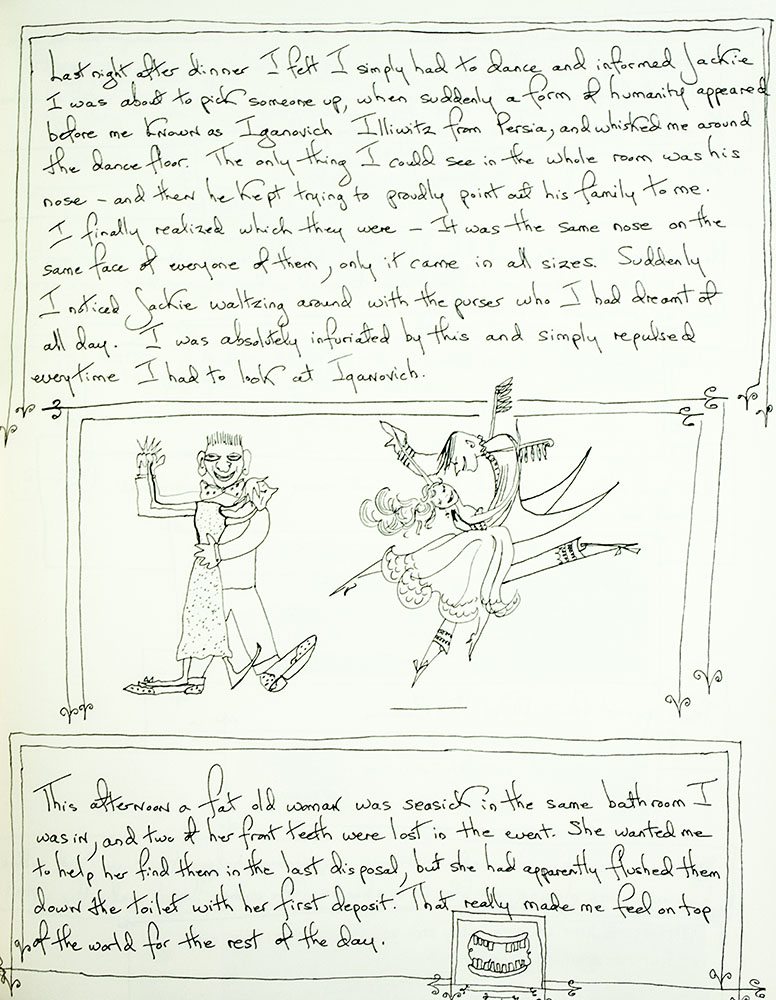 Last night after dinner I felt I simply had to dance and informed Jackie
I was about to pick someone up, when suddenly a form of humanity appeared
before me known as Iganovich Illiwitz from Persia, and whisked me around
the dance floor. The only thing I could see in the whole room was his
nose – and then he kept trying to proudly point out his family to me.
I finally realized which they were – It was the same nose on the
same face of everyone of them, only it came in all sizes. Suddenly
I noticed Jackie waltzing around with the purser who I had dreamt of
all day. I was absolutely infuriated by this and simply repulsed
everytime I had to look at Iganovich.
This afternoon a fat old woman was seasick in the same bathroom I
was in, and two of her front teeth were lost in the event. She wanted me
to help her find them in the last disposal, but she had apparently flushed them
down the toilet with her first deposit. That really made me feel on top
of the world for the rest of the day.